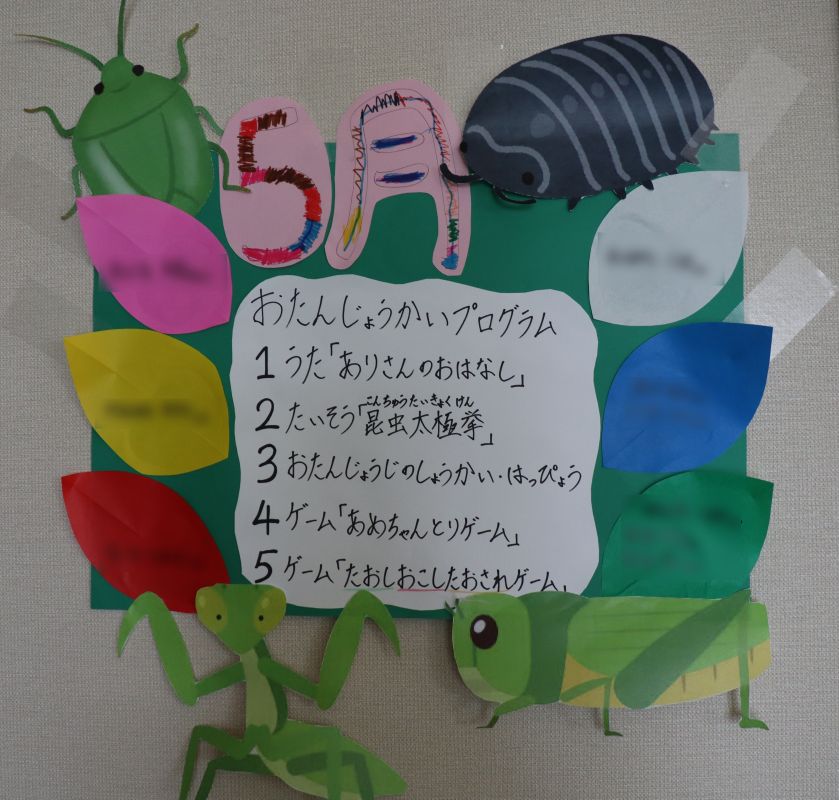 5月
おたんじょうかいプログラム
1 うた「ありさんのおはなし」
こんちゅうたいきょくけん
2 たいそう「昆虫太極拳」
3 おたんじょうじのしょうかい・はっぴょう
4 ゲーム「あめちゃんとりゲーム」
5 ゲーム「たおしおこしたおされゲーム」